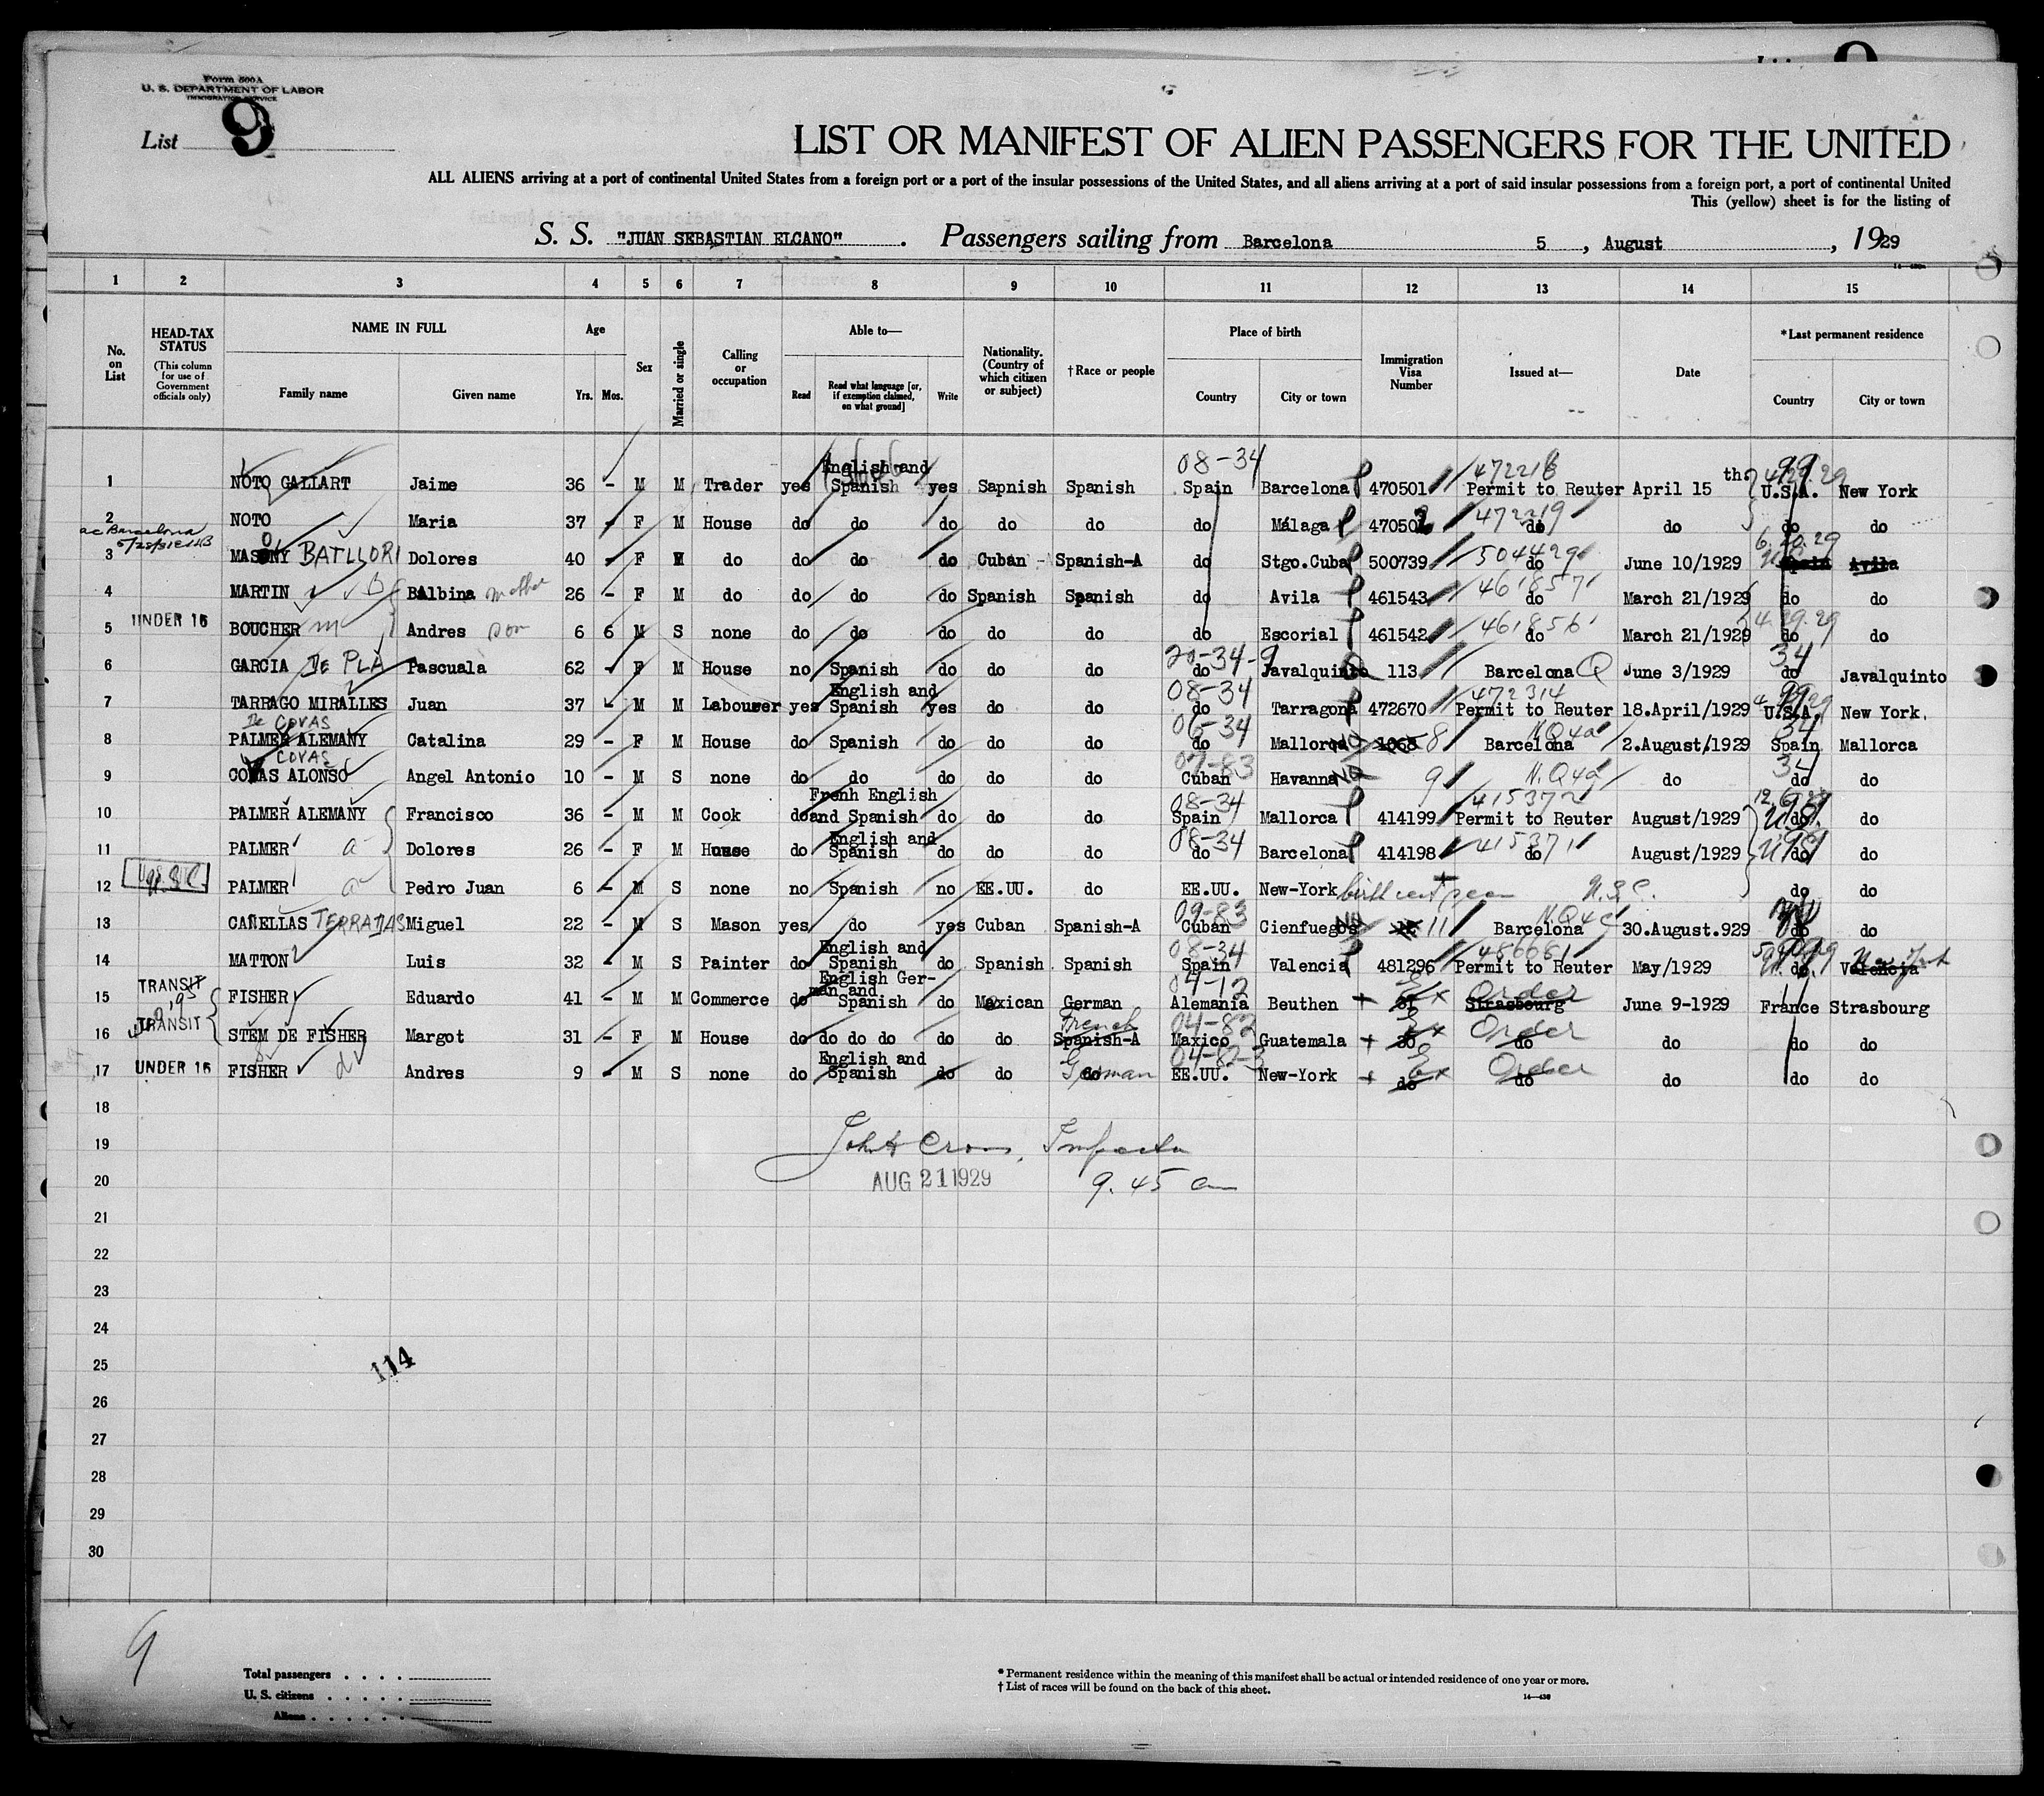 Form 500A
U. S. DEPARTMENT OF LABOR
IMMIGRATION SERVICE
List 9
LIST OR MANIFEST OF ALIEN PASSENGERS FOR THE UNITED
ALL ALIENS arriving at a port of continental United States from a foreign port or a port of the insular possessions of the United States, and all aliens arriving at a port of said insular possessions from a foreign port, a port of continental United
This (yellow) sheet is for the listing of
S. S. "JUAN SEBASTIAN ELCANO". Passengers sailing from Barcelona 5, August, 1929
1 2 3 4 5 6 7 8 9 10 11 12 13 14 15
No. on List
HEAD-TAX STATUS
(This column for use of Government officials only)
NAME IN FULL
Family name Given name
Age
Yrs. Mos.
Sex
Married or single
Calling or occupation
Able to—
Read Read what language [or, if exemption claimed, on what ground] Write
Nationality. (Country of which citizen or subject)
†Race or people
Place of birth
Country City or town
Immigration Visa Number
Issued at—
Date
*Last permanent residence
Country City or town
1 NOTO GALLART Jaime 36 - M M Trader yes English and Spanish yes Sapnish Spanish 08-34 Spain Barcelona 470501 472218 Permit to Reuter April 15 th. 99 4.29.29 U.S.A. New York
2 NOTO Maria 37 - F M House do do do do do do Málaga 470502 472219 do do do do
ac Barcelona
3 MASONY BATLLORI Dolores 40 - F M do do do do Cuban Spanish-A do Stgo.Cuba 500739 504429 do June 10/1929 6.20.29 Spain Avila
4 MARTIN Balbina mother 26 - F M do do do do Spanish Spanish do Avila 461543 461857 do March 21/1929 do do
UNDER 16
5 BOUCHER m Andres son 6 6 M S none do do do do do do Escorial 461542 461856 do March 21/1929 4.29.29 do do
6 GARCIA DE PLA Pascuala 62 - F M House no Spanish do do do 20-34-9 do Javalquinto 113 Barcelona Q June 3/1929 34 do Javalquinto
7 TARRAGO MIRALLES Juan 37 - M M Labourer yes English and Spanish yes do do 08-34 do Tarragona 472670 472314 Permit to Reuter 18.April/1929 99 U.S.A. New York.
De COVAS
8 PALMER ALEMANY Catalina 29 - F M House do Spanish do do do 06-34 do Mallorca 1068 8 N.Q4a Barcelona 2.August/1929 34 Spain Mallorca
COVAS
9 COVAS ALONSO Angel Antonio 10 - M S none do do do do do 07-83 Cuban Havanna 9 N.Q4a do 34 do do
10 PALMER ALEMANY Francisco 36 - M M Cook do Frenh English and Spanish do do do 08-34 Spain Mallorca 414199 415372 Permit to Reuter August/1929 do do
11 PALMER a Dolores 26 - F M House do English and Spanish do do do 08-34 do Barcelona 414198 415371 do August/1929 do do
U.S.C.
12 PALMER a Pedro Juan 6 - M S none no Spanish no EE.UU. do EE.UU. New-York birth cert + seen U.S.C. do do
13 CAÑELLAS TERRADAS Miguel 22 - M S Mason yes do yes Cuban Spanish-A 09-83 Cuban Cienfuegos 11 N.Q4c Barcelona 30.August.929 do do
14 MATTON Luis 32 - M S Painter do English and Spanish do Spanish Spanish 08-34 Spain Valencia 481296 486681 Permit to Reuter May/1929 do Valencia New York
TRANSIT
15 FISHER Eduardo 41 - M M Commerce do English German and Spanish do Mexican German 04-12 Alemania Beuthen + 31 x Order Strasbourg June 9-1929 France Strasbourg
TRANSIT
16 STEM DE FISHER Margot 31 - F M House do do do do do do French Spanish-A 04-82 Maxico Guatemala + 30 x Order do do do do
UNDER 16
17 FISHER Andres 9 - M S none do English and Spanish do do German do 04-82-3 EE.UU. New-York + do x Order do do do do
18
19 John H Cross, Inspector
20 AUG 21 1929 9.45 am
21
22
23
24
25 114
26
27
28
29
30
9
Total passengers . . . .
U. S. citizens . . . . .
Aliens . . . . . .
* Permanent residence within the meaning of this manifest shall be actual or intended residence of one year or more.
† List of races will be found on the back of this sheet.
14—430